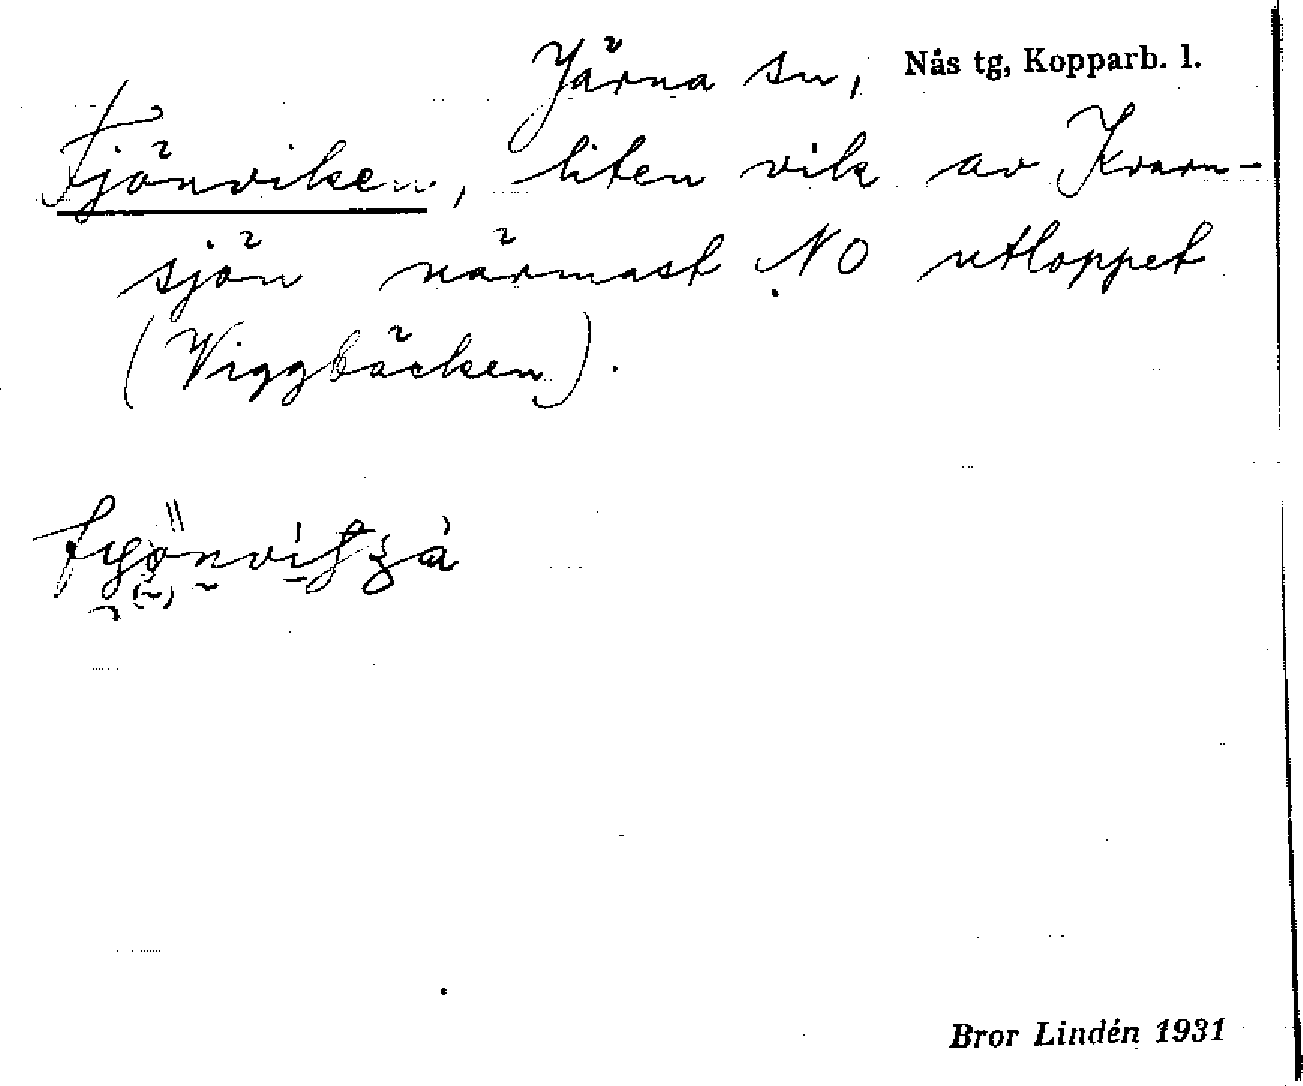 Järna sn, Nås tg, Kopparb. l.
Fjönviken, liten vik av Kvarn-
sjön närmast NO utloppet
(Viggbäcken).
Bror Lindén 1931